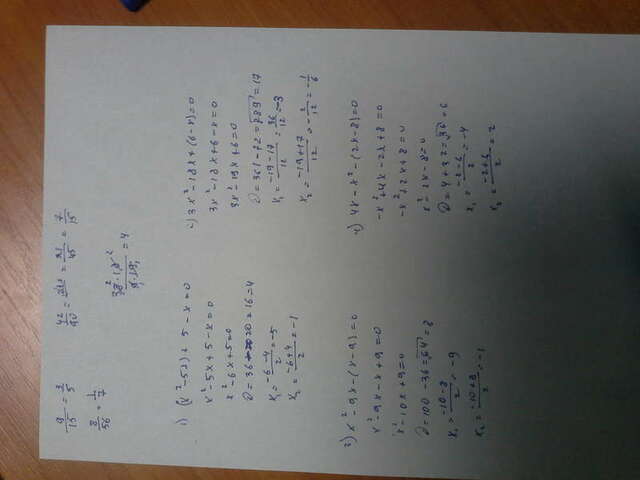 9/15 = 3/5
8/56 = 1/7
42/90 = 21/45 = 7/15
1) (x² - 5x) + 5 - x = 0
x² - 5x + 5 - x = 0
x² - 6x + 5 = 0
x₁ = -6-4/2 = -5
x₂ = -6+4/2 = -1
2) x² - 9x - (x - 9) = 0
x² - 9x - x + 9 = 0
x² - 10x + 9 = 0
x₁ = -10-8/2 = -9
x₂ = -10+8/2 = -1
3x² - 18x + 6 - x = 0
3x² - 19x + 6 = 0
D = 361 - 72 = √289 = 17
x₁ = -19-17/12 = 36/12 = -3
x₂ = -19+17/12 = -2/12 = -1/6
4) 4x - x² - (2x - 8) = 0
-x² + 4x - 2x + 8 = 0
-x² + 2x + 8 = 0
x² - 2x - 8 = 0
D = 4 + 32 = √36 = 6
x₁ = -2-6/2 = -4
x₂ = -2+6/2 = 2